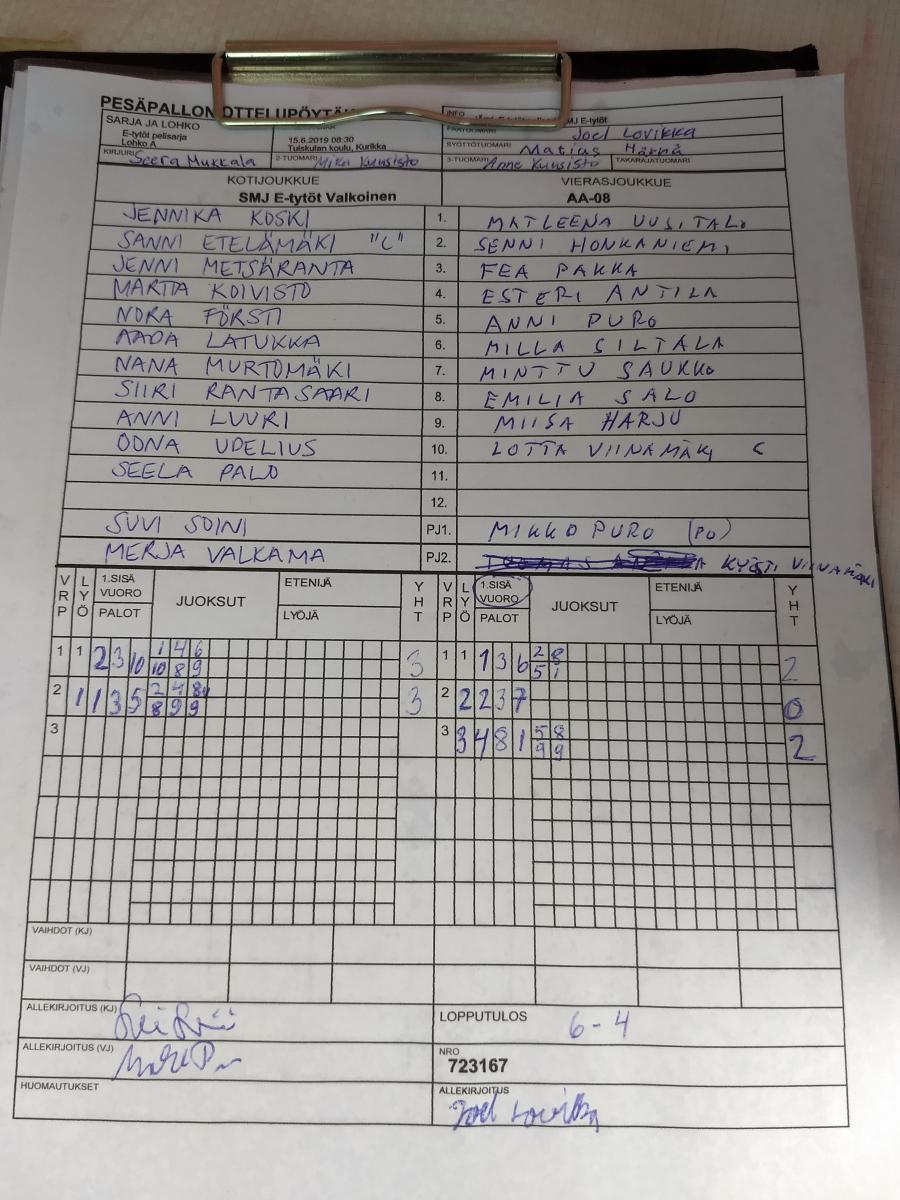 PESÄPALLON OTTELUPÖYTÄK
SARJA JA LOHKO
E-tytöt pelisarja
Lohko A
15.6.2019 08:30
Tuiskulan koulu, Kurikka
INFO
MJ E-tytöt
Joel Lovikka
SYÖTTÖTUOMARI Matias Härmä
KIRJURI Seera Mukkala 2-TUOMARI Mika Kuusisto 3-TUOMARI Anne Kuusisto TAKARAJATUOMARI
KOTIJOUKKUE VIERASJOUKKUE
SMJ E-tytöt Valkoinen AA-08
JENNIKA KOSKI 1. MATLEENA UUSITALO
SANNI ETELÄMÄKI "C" 2. SENNI HONKANIEMI
JENNI METSÄRANTA 3. FEA PAKKA
MARTTA KOIVISTO 4. ESTERI ANTILA
NORA FÖRSTI 5. ANNI PURO
AADA LATUKKA 6. MILLA SILTALA
NANA MURTOMÄKI 7. MINTTU SAUKKO
SIIRI RANTASAARI 8. EMILIA SALO
ANNI LUURI 9. MIISA HARJU
OONA UDELIUS 10. LOTTA VIINAMÄKI C
SEELA PALO 11.
12.
SUVI SOINI PJ1. MIKKO PURO (PU)
MERJA VALKAMA PJ2. KYÖSTI VIINAMÄKI
VRP LYÖ 1.SISÄ VUORO PALOT JUOKSUT ETENIJÄ LYÖJÄ YHT VRP LYÖ 1.SISÄ VUORO PALOT JUOKSUT ETENIJÄ LYÖJÄ YHT
1 1 2 3 10 1 4 6 3 1 1 1 3 6 2 8 2
10 8 9 5 1
2 1 1 3 5 2 4 8 3 2 2 2 3 7 0
8 9 9
3 3 3 4 8 1 5 8 2
9 9
VAIHDOT (KJ)
VAIHDOT (VJ)
ALLEKIRJOITUS (KJ)
LOPPUTULOS 6-4
ALLEKIRJOITUS (VJ)
NRO
723167
HUOMAUTUKSET
ALLEKIRJOITUS
Joel Lovikka